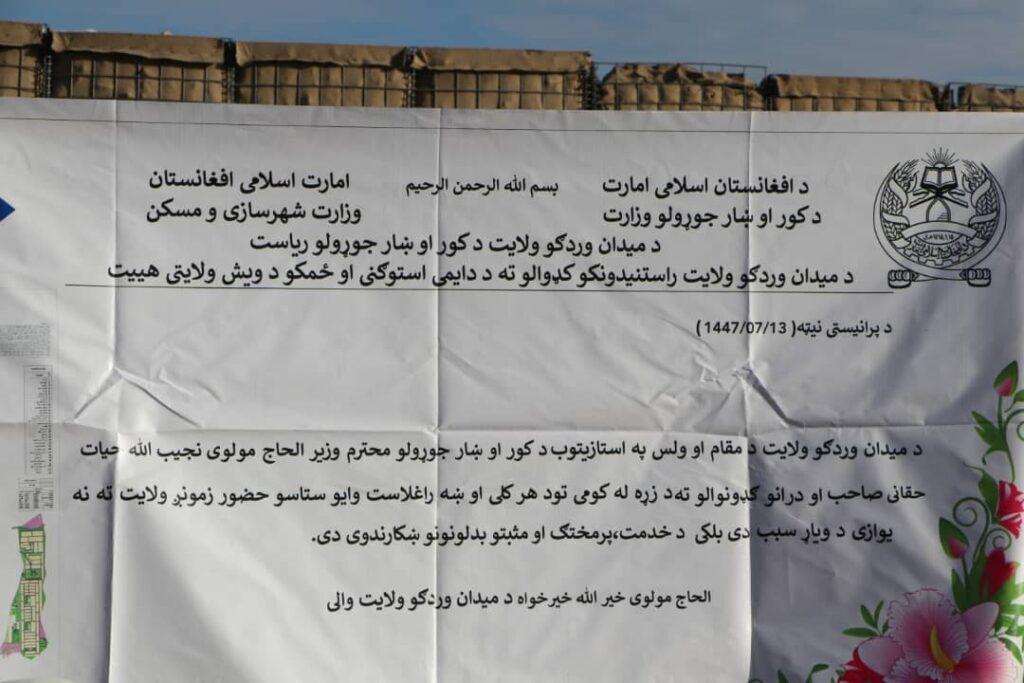 د افغانستان اسلامی امارت
بسم الله الرحمن الرحیم
امارت اسلامی افغانستان
د کور او ښار جوړولو وزارت
وزارت شهرسازی و مسکن
د میدان وردګو ولایت د کور او ښار جوړولو ریاست
د میدان وردګو ولایت راستنیدونکو کډوالو ته د دایمی استوګنی او ځمکو د ویش ولایتی هییت
د پرانیستی نیټه( 1447/07/13 )
د میدان وردګو ولایت د مقام او ولس په استازیتوب د کور او ښار جوړولو محترم وزیر الحاج مولوی نجیب الله حیات
حقانی صاحب او درانو کډونوالو ته د زړه له کومی تود هر کلی او ښه راغلاست وایو ستاسو حضور زمونږ ولایت ته نه
یوازی د ویاړ سبب دی بلکی د خدمت،پرمختګ او مثبتو بدلونونو ښکارندوی دی.
الحاج مولوی خیر الله خیرخواه د میدان وردګو ولایت والی